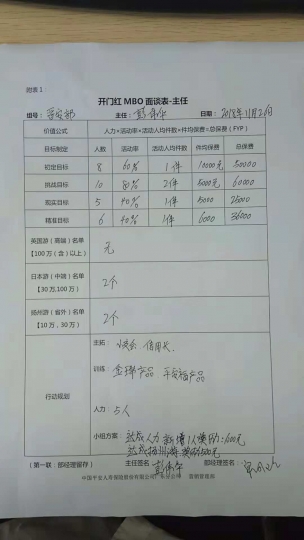 附表 1
开门红 MBO 面谈表-主任
组号: 主任: 彭伟华 日期: 2018年11月26日
价值公式 人力×活动率×活动人均件数×件均保费=总保费 (FYP)
目标制定 人数 活动率 活动人均件数 件均保费 总保费
初定目标 8 60% 1件 10000元 50000
挑战目标 10 80% 2件 5000元 60000
现实目标 5 40% 1件 5000 25000
精准目标 6 40% 1件 6000 36000
英国游(高端)名单
【100万(含)以上】
无
日本游(中端)名单
【30万,100万】
2个
扬州游(省外)名单
【10万,30万】
2个
行动规划
主拓: 信用卡
训练: 金瑞产品 平安福产品
人力: 5人
小组方案: 达成人力 新增1人奖励:1600元
达成扬州游 奖励500元
(第一联:部经理留存) 主任签名: 彭伟华 部经理签名:
中国平安人寿保险股份有限公司